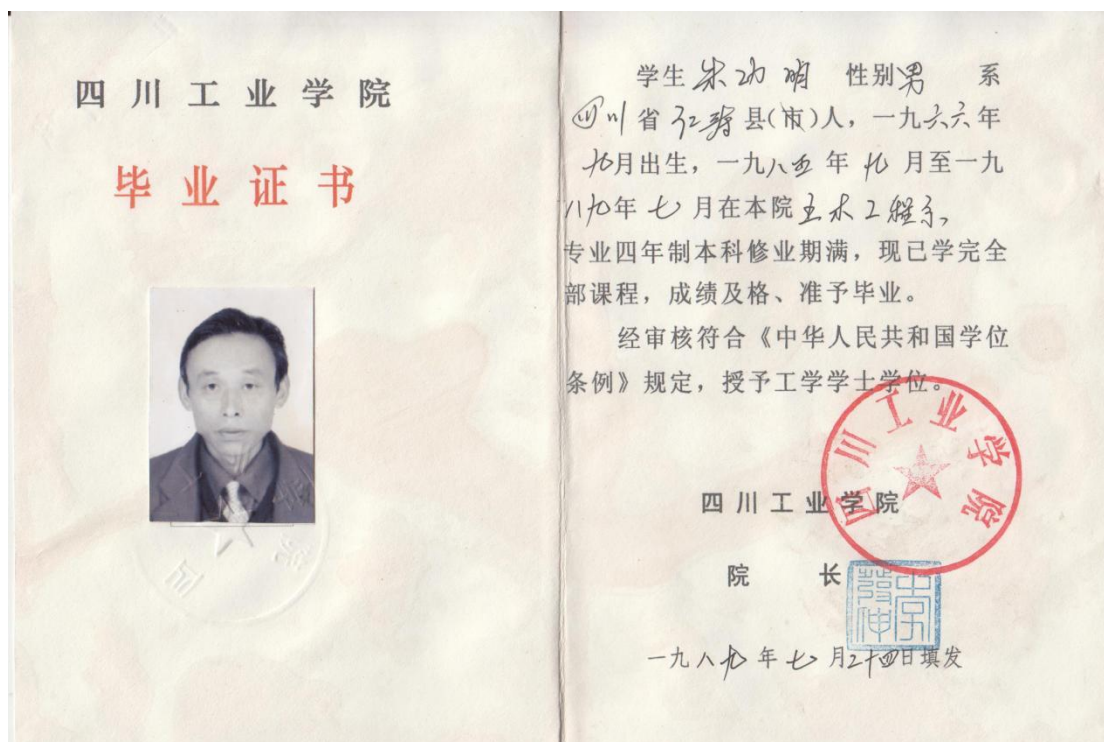 四川工业学院
毕业证书
学生朱功明 性别男 系
四川省仁寿县(市)人，一九六六年
九月出生，一九八五年九月至一九
八九年七月在本院土木工程系
专业四年制本科修业期满，现已学完全
部课程，成绩及格、准予毕业。
经审核符合《中华人民共和国学位
条例》规定，授予工学学士学位。
四川工业学院
四川工业学院
院 长
一九八九年七月二十四日填发